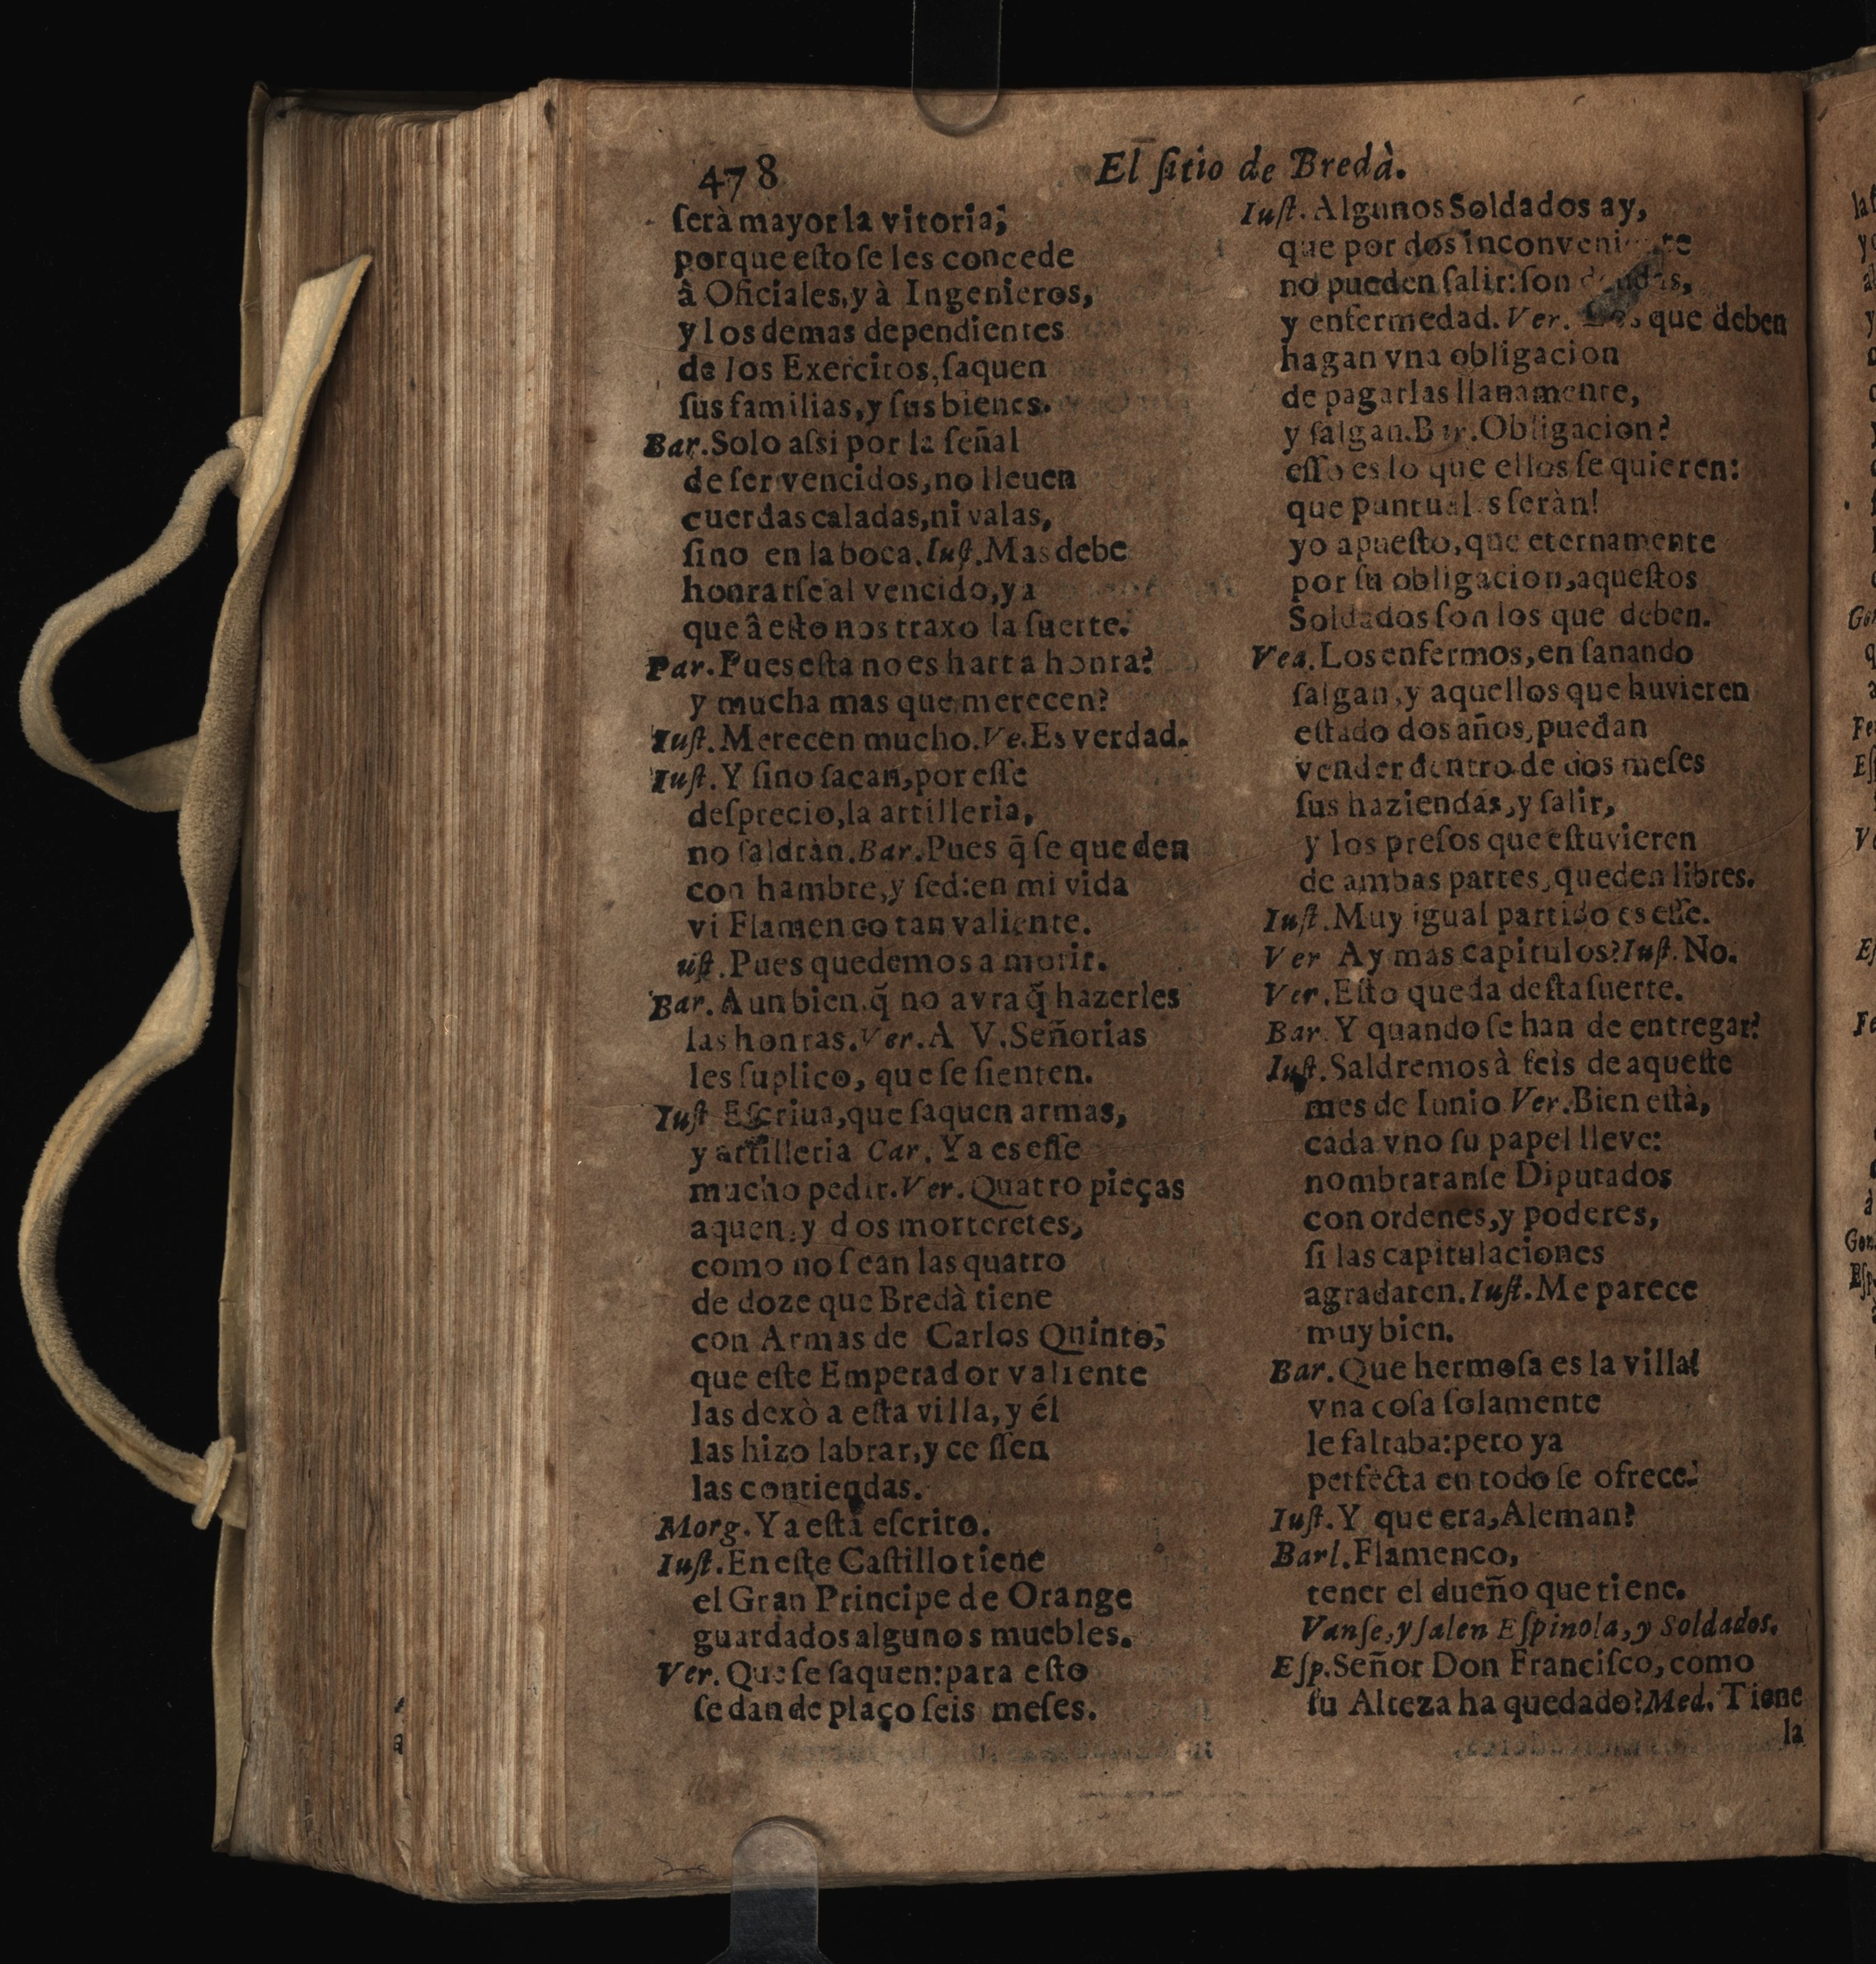 478
El ſitio de Bredà.
ſerà mayor la vitoria;
porque eſto ſe les concede
â Oficiales, y à Ingenieros,
y los demas dependientes
de los Exercitos, ſaquen
ſus familias, y ſus bienes.
Bar. Solo aſsi por la ſeñal
de ſer vencidos, no lleuen
cuerdas caladas, ni valas,
ſino en la boca. Iuſt. Mas debe
honrarſe al vencido, ya
que â eſto nos traxo la ſuerte.
Par. Pues eſta no es harta honra?
y mucha mas que merecen?
Iuſt. Merecen mucho. Ve. Es verdad.
Iuſt. Y ſino ſacan, por eſſe
deſprecio, la artilleria,
no ſaldràn. Bar. Pues q̃ ſe queden
con hambre, y ſed: en mi vida
vi Flamenco tan valiente.
uſt. Pues quedemos a morir.
Bar. Aun bien, q̃ no avra q̃ hazerles
las honras. Ver. A V. Señorias
les ſuplico, que ſe ſienten.
Iuſt Eſcriua, que ſaquen armas,
y artilleria Car. Ya es eſſe
mucho pedir. Ver. Quatro pieças
aquen, y dos morteretes,
como no ſean las quatro
de doze que Bredà tiene
con Armas de Carlos Quinto;
que eſte Emperador valiente
las dexò a eſta villa, y él
las hizo labrar, y ceſſen
las contiendas.
Morg. Ya eſtà eſcrito.
Iuſt. En eſte Caſtillo tiene
el Gran Principe de Orange
guardados algunos muebles.
Ver. Que ſe ſaquen: para eſto
ſe dan de plaço ſeis meſes.
Iuſt. Algunos Soldados ay,
que por dos
no pueden ſalir: ſon
y enfermedad. Ver. que deben
hagan vna obligacion
de pagarlas llanamente,
y ſalgan. Bar. Obligacion?
eſſo es lo que ellos ſe quieren:
que ſeràn!
yo apueſto, que eternamente
por ſu obligacion, aqueſtos
Soldados ſon los que deben.
Vea. Los enfermos, en ſanando
ſalgan, y aquellos que huvieren
eſtado dos años, puedan
vender dentro de dos meſes
sus haziendas, y ſalir,
y los preſos que eſtuvieren
de ambas partes, queden libres.
Iuſt. Muy igual partido es eſſe.
Ver Ay mas capitulos? Iuſt. No.
Ver. Eſto queda deſta ſuerte.
Bar. Y quando ſe han de entregar?
Iuſt. Saldremos à ſeis de aqueſte
mes de Iunio Ver. Bien eſtà,
cada vno ſu papel lleve:
nombraranſe Diputados
con ordenes, y poderes,
ſi las capitulaciones
agradaren. Iuſt. Me parece
muy bien.
Bar. Que hermoſa es la villa!
vna coſa ſolamente
le faltaba: pero ya
perfecta en todo ſe ofrece.
Iuſt. Y que era, Aleman?
Barl. Flamenco,
tener el dueño que tiene.
Vanſe, y ſalen Eſpinola, y Soldados.
Eſp. Señor Don Franciſco, como
ſu Alteza ha quedado? Med. Tiene
la